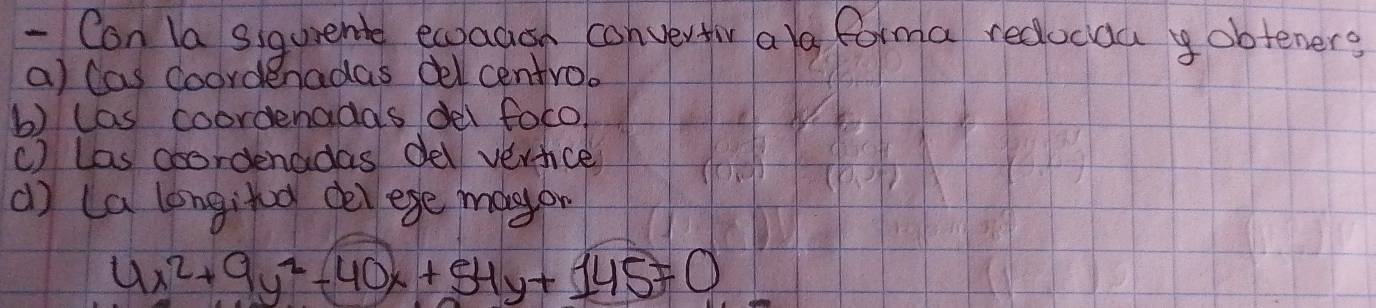 - Con la siguiente ecuación convertir a la forma reducida y obtener:
a) Las coordenadas del centro.
b) Las coordenadas del foco
c) Las coordenadas del vértice
d) La longitud del eje mayor
4x²+9y²-40x+54y+145=0